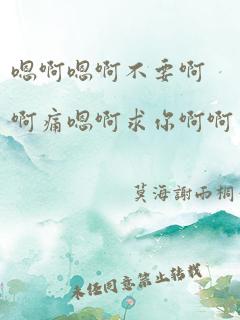 嗯啊嗯啊不要啊
啊痛嗯啊求你啊啊
莫海謝雨桐
未经同意禁止转载